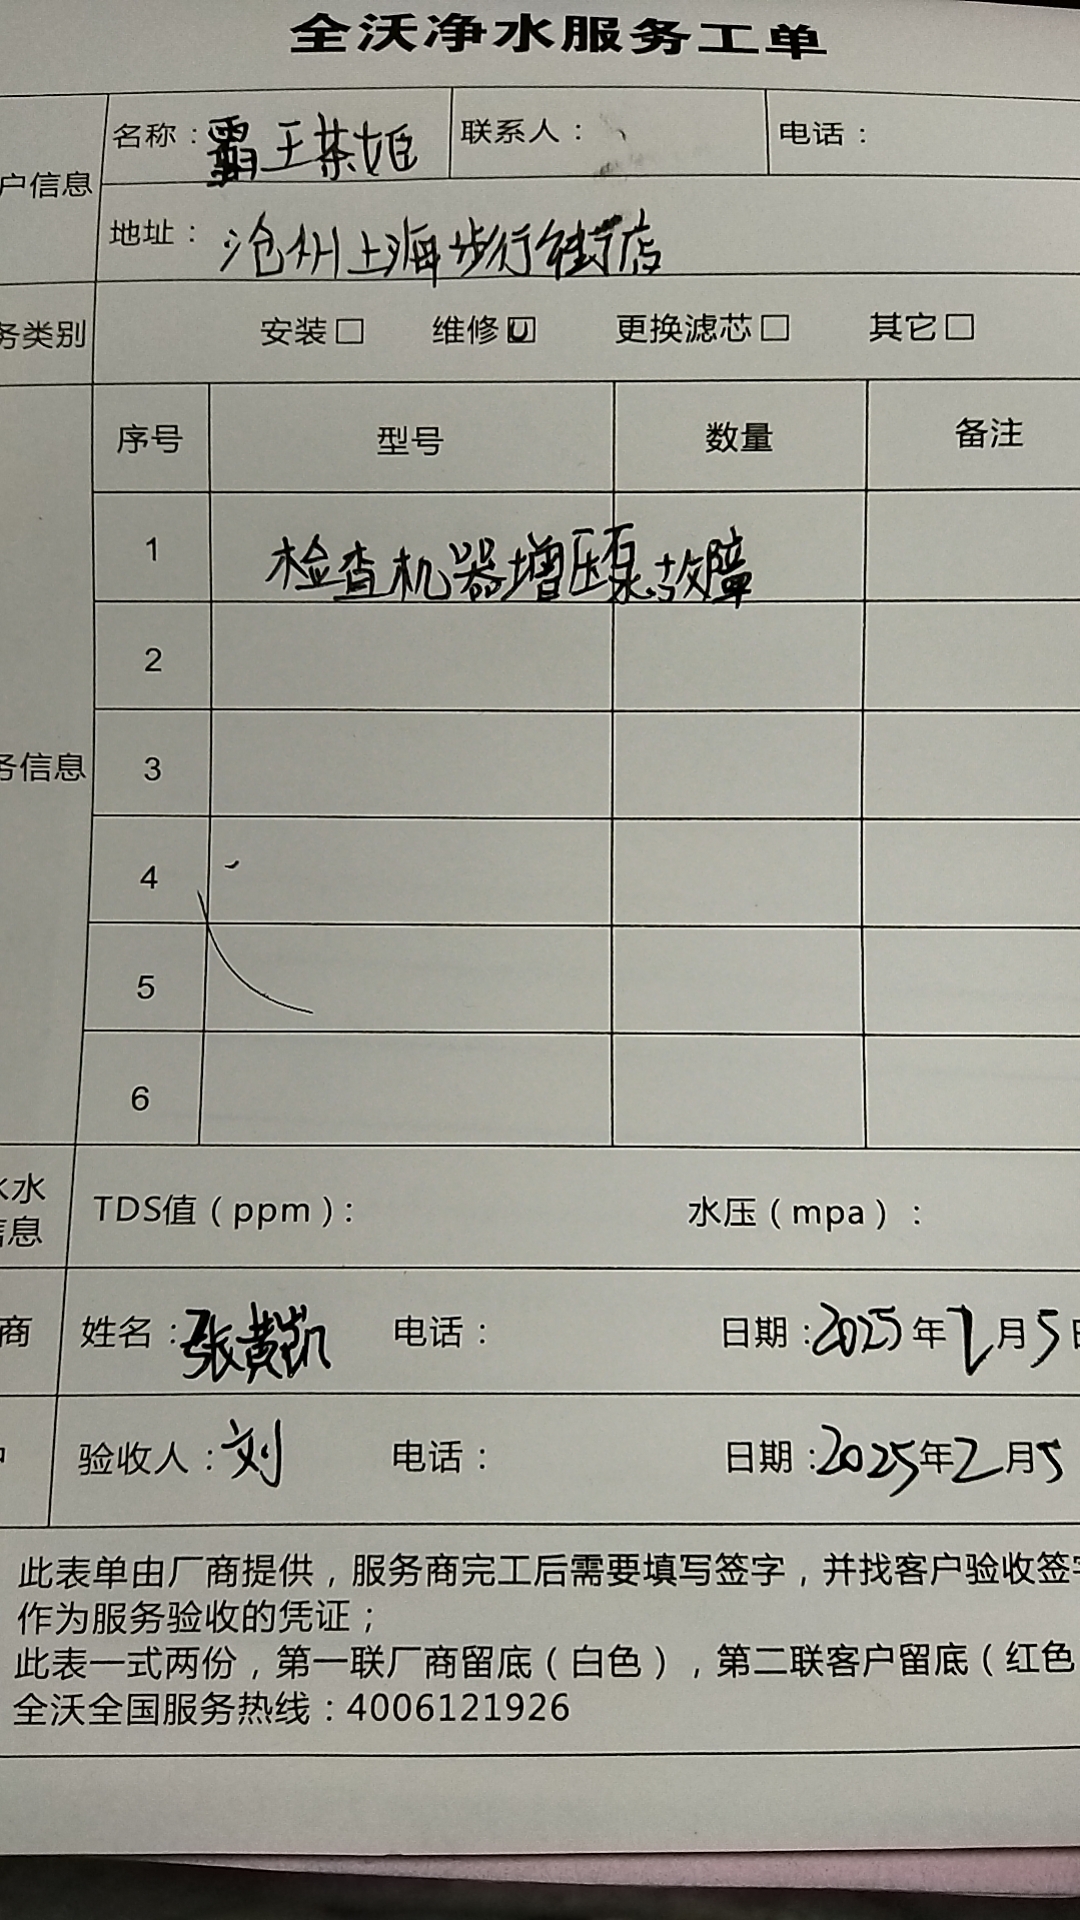 全沃净水服务工单
户信息 名称：霸王茶姬 联系人： 电话：
地址：沧州上海步行街店
务类别 安装□ 维修☑ 更换滤芯□ 其它□
序号 型号 数量 备注
1 检查机器增压泵故障
2
务信息 3
4
5
6
水
信息 TDS值（ppm）： 水压（mpa）：
商 姓名：张黄凯 电话： 日期：2025年2月5日
验收人：刘 电话： 日期：2025年2月5
此表单由厂商提供，服务商完工后需要填写签字，并找客户验收签字
作为服务验收的凭证；
此表一式两份，第一联厂商留底（白色），第二联客户留底（红色
全沃全国服务热线：4006121926